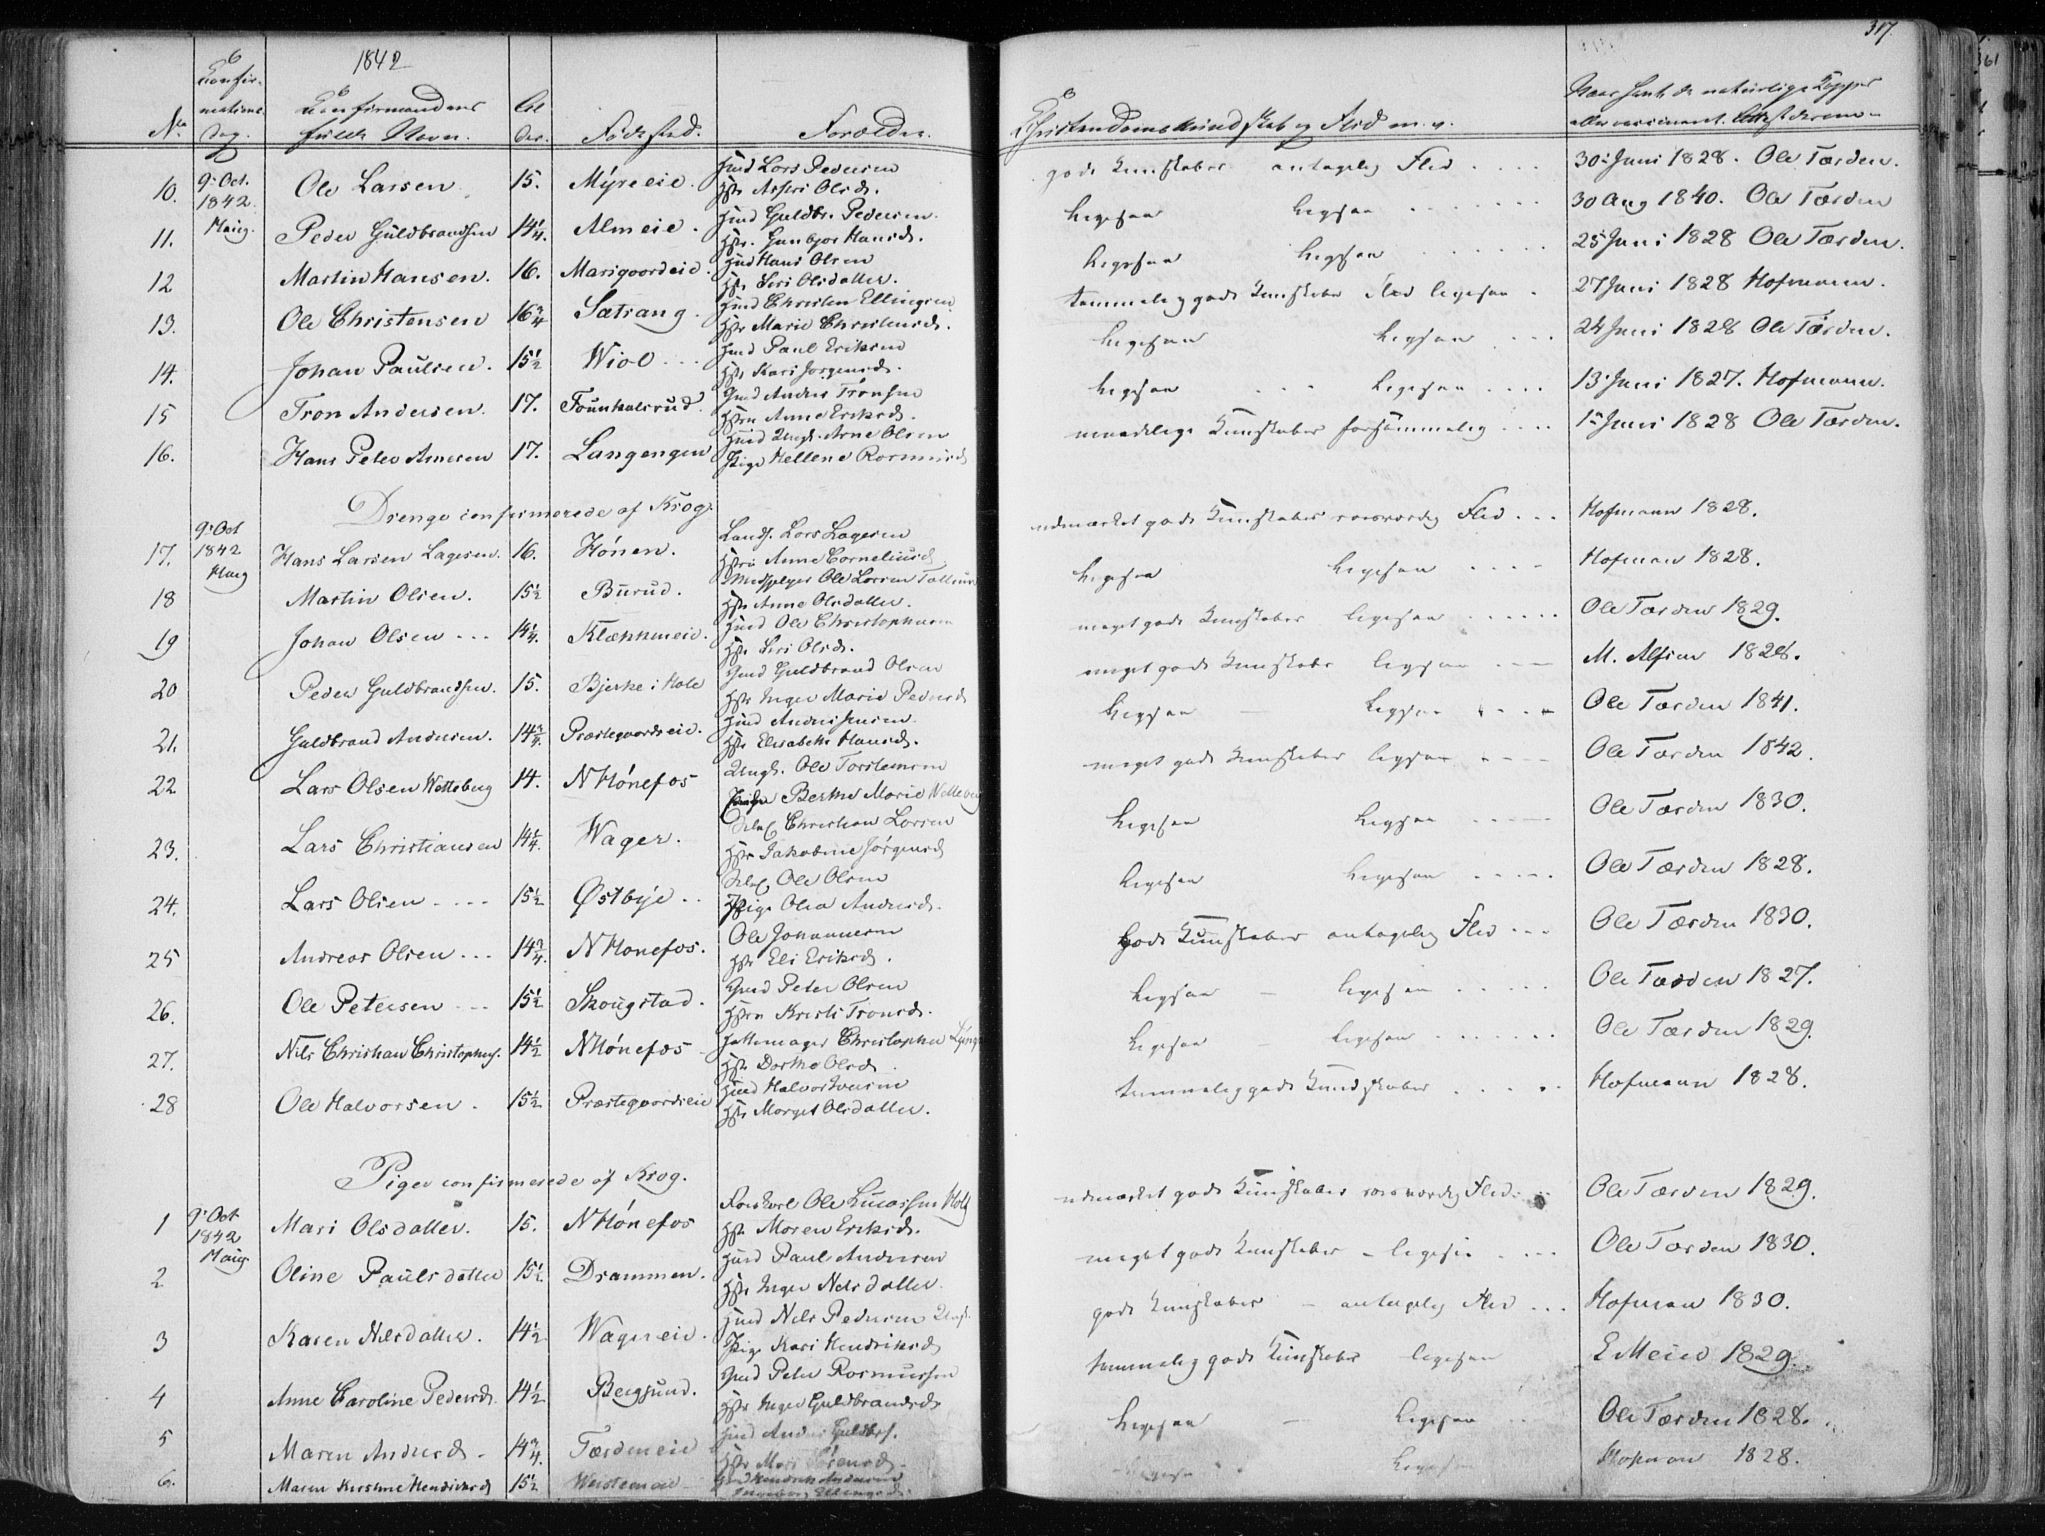 1842
317.
No. Confirmations Dag. Confirmandens fulde Navn. Alder. Fødested. Forældre. Christendomskundskab og Flid m. v.
10. 9. Oct. 1842. Haug. Ole Larsen 15. Myreeie. Huusmd Lars Pedersen
Hstr. Olsd.
gode Kundskaber antagelig Flid 30. Juni 1828. Ole Tærden.
11. Peder Guldbrandsen 14 1/4. Almeie. Hmd Guldbr. Pedersen
Hstr. Gunbjør Hansd.
ligesaa ligesaa 30 Aug 1840. Ole Tærden
12 Martin Hansen. 16. Marigaardeie. Hmd Hans Olsen
Hstr Siri Olsdatter.
ligesaa ligesaa 25 Juni 1828 Ole Tærden.
13. Ole Christensen 16 3/4 Sætrang. Hmd Christen Ellingsen
Hstr Marie Christensd.
temmelig gode Kundskaber Flid ligesaa. 27 Juni 1828 Hofmann.
14. Johan Paulsen. 15 1/2 Wiol Hmd Paul Eriksen
Hstr Kari Jørgensd.
ligesaa ligesaa 24 Juni 1828 Ole Tærden.
15 Tron Andersen. 17. Gmd Anders Tronsen
Hstr Anne Eriksd.
ligesaa ligesaa 13. Juni 1827. Hofmann.
16. Hans Peter Arnesen 17. Langengen Hmd Ungk. Arne Olsen
Pige Hellene Rasmusd
maadelige Kundskaber forsømmelig 1. Juni 1828 Ole Tærden.
Drenge confirmerede af Krog.
17. 9. Oct 1842 Haug Hans Larsen Lagesen. 16. Hønen. Lars Lagesen
Hstr Anne Corneliusd
udmærket gode Kundskaber roesværdig Flid Hofmann 1828.
18 Martin Olsen. 15 1/2 Burud. Ole Larsen
Hstr Anne Olsdatter.
ligesaa ligesaa Hofman 1828.
19 Johan Olsen 14 1/4. Klækkeneie. Hmd Ole Christophersen
Hstr Siri Olsd.
meget gode Kundskaber ligesaa Ole Tærden 1829.
20 Peder Guldbrandsen. 15. Bjerke i Hole Gmd Guldbrand Olsen
Hstr Inger Marie Pedersd
meget gode Kundskaber ligesaa M. Alfsen 1828.
21. Guldbrand Andersen. 14 3/4. Præstegaardseie. Hmd Anders Jensen
Hstr Elisabeth Hansd.
ligesaa ligesaa Ole Tærden 1841.
22 Lars Olsen Wetteberg 14. N Hønefos Ungk. Ole Torstensen
Pige Berthe Marie Wetteberg
meget gode Kundskaber ligesaa Ole Tærden 1842.
23. Lars Christiansen 14 1/4. Wager. Christian Larsen
Hstr Jakobine Jørgensd
ligesaa ligesaa Ole Tærden 1830.
24. Lars Olsen 15 1/2 Østbye Ole Olsen
Pige Olea Andersd.
ligesaa ligesaa Ole Tærden 1828.
25 Andreas Olsen 14 3/4. N Hønefos. Ole Johannesen
Hstr Eli Eriksd.
gode Kundskaber antagelig Flid Ole Tærden 1830.
26. Ole Petersen 15 1/2 Skougstad. Gmd Peter Olsen
Hstr Kristi Tronsd.
ligesaa ligesaa Ole Tærden 1827.
27. Nils Christian Christophers. 14 1/2 N Hønefos Hattemager Christopher
Hstr Dorthe Olsd
ligesaa ligesaa Ole Tærden 1829.
28 Ole Halvorsen. 15 1/2 Præstegaardseie Hmd Halvor Iversen
Hstr Marget Olsdatter.
temmelig gode Kundskaber Hofmann 1828.
Piger confirmerede af Krog.
1 9. Oct 1842 Haug Mari Olsdatter. 15. N Hønefos Ole Lucassen
Hstr Maren Eriksd.
udmærket gode Kundskaber roesværdig Flid Ole Tærden 1829.
2 Oline Paulsdatter 15 1/2 Drammen. Hmd Paul Andersen
Hstr Inger Nilsdatter.
meget gode Kundskaber ligesaa Ole Tærden 1830.
3 Karen Nilsdatter. 14 1/2. Wagereie. Hmd Nils Pedersen Ungk.
Pige Kari Hendriksd
gode Kundskaber antagelig Flid Hofman 1830.
4 Anne Caroline Pedersd. 14 1/2 Bergsund. Gmd Peter Rasmussen
Hstr Inger Guldbrandsd
temmelig gode Kundskaber ligesaa E Meier 1829.
5 Maren Andersd. 14 3/4. Tærdeneie Hmd Anders Guldbs.
Hstr Mari Sørensd.
ligesaa ligesaa Ole Tærden 1828.
6. Maren Kirstine Hendriksd 15 1/2 Hendrik Andersen
Ellingsd.
ligesaa Hofman 1828.